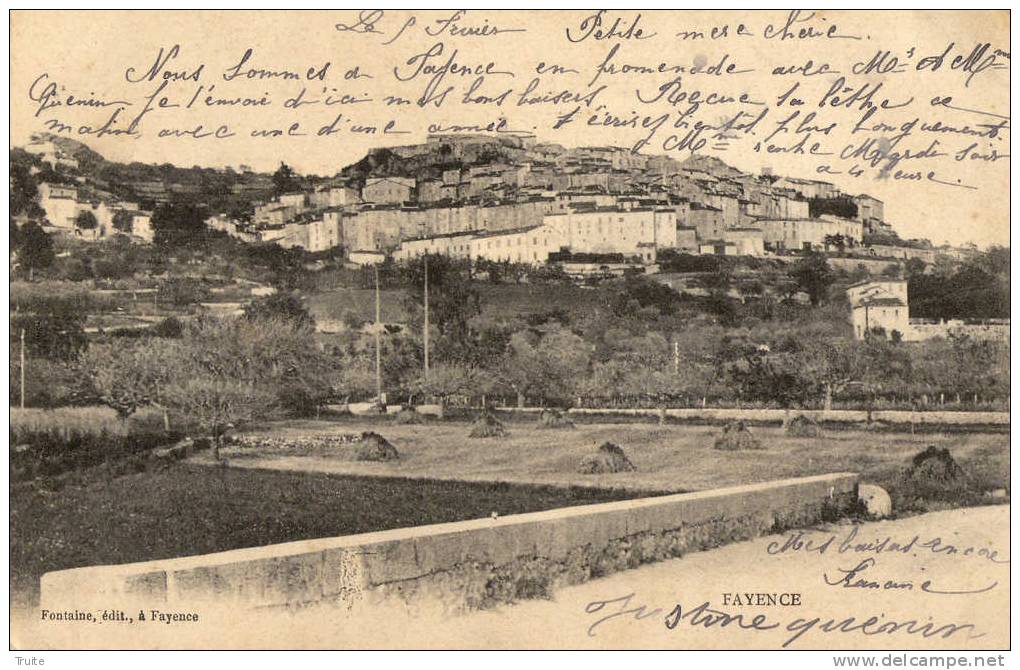 Le 5 Fevrier Petite mere Cherie.
Nous Sommes a Fayence en promenade avec Mrs et Mme
Quenin Je l'envoie d'ici mes bons baisers. Recue ta lettre ce
matin, avec une d'une année. écrises bientot plus longuement.
Mme rentre Mazrdi Soir
a 4 eure.
Mes baisers encore
Francine
Justone quénin
FAYENCE
Fontaine, édit., à Fayence
Truite
http://www.delcampe.net